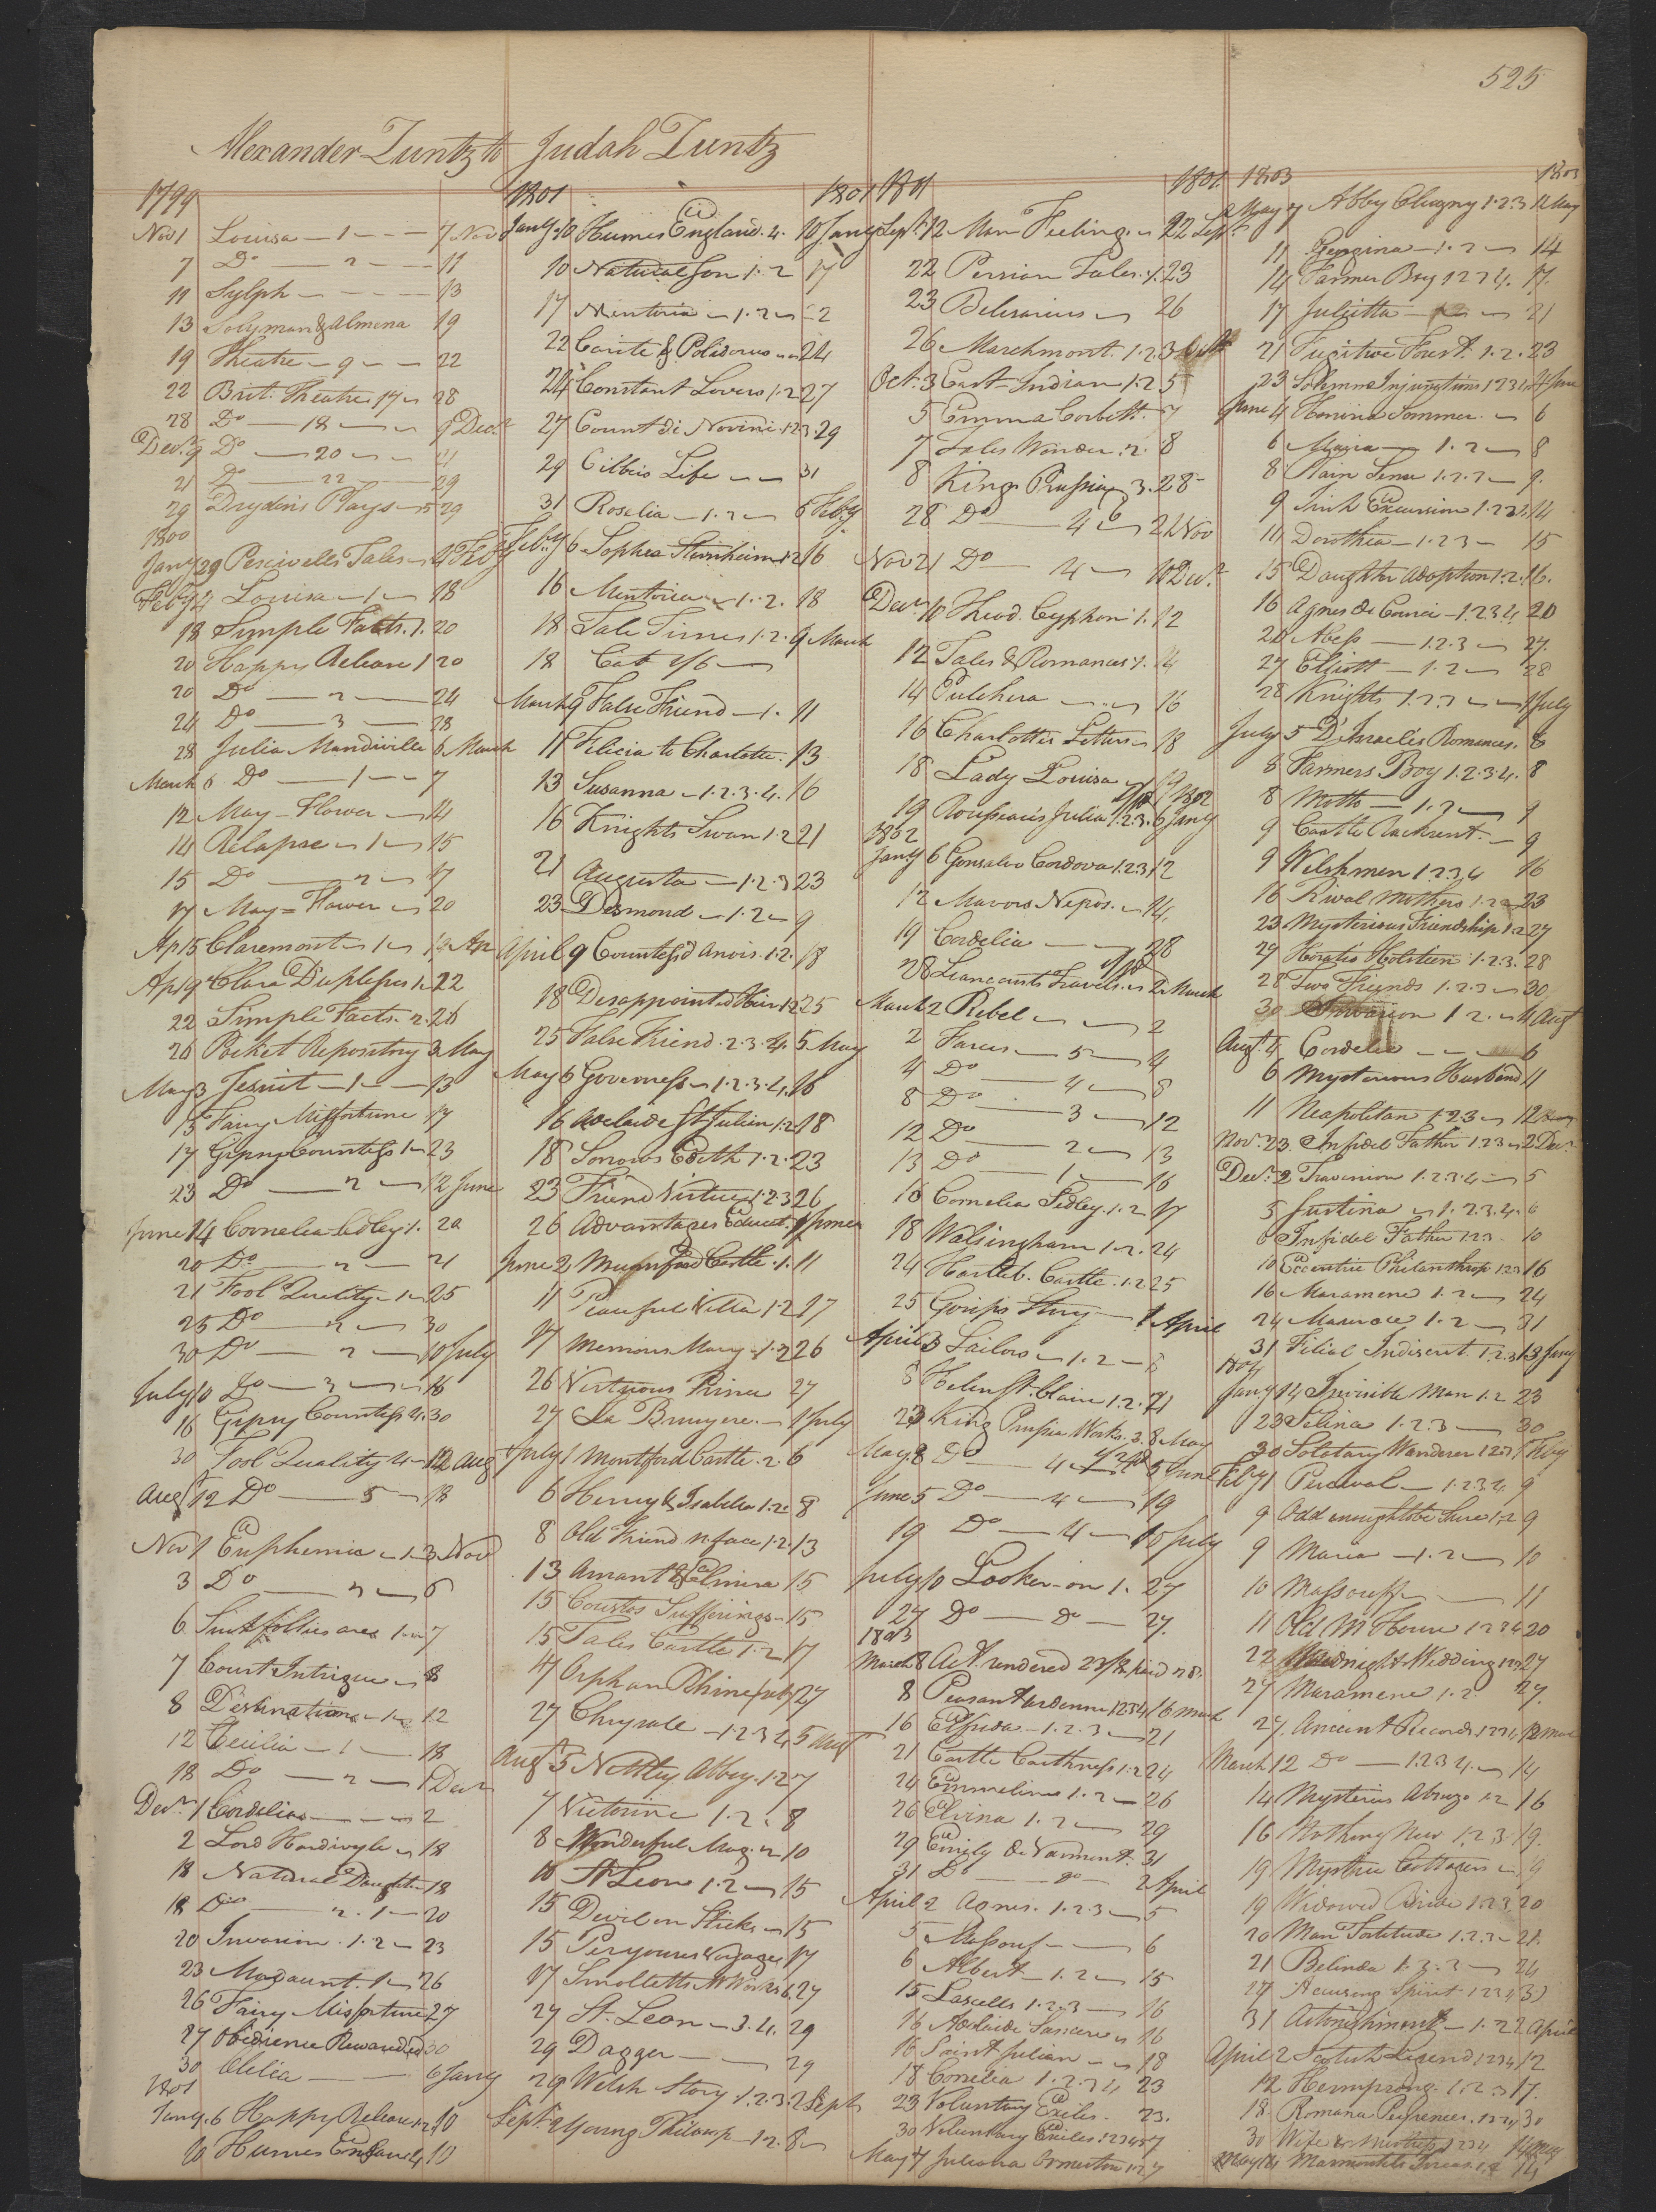 525
Alexander Zuntz to Judah Zuntz
1799
Nov 1 Louisa 1 7 Nov
7 Do 2 11
11 Sylph 13
13 Solyman & Almena 19
19 Theatre 9 22
22 Brit. Theatre 17 28
28 Do 18 9 Decr
Decr 9 Do 20 21
21 Do 22 29
29 Drydens Plays 5 29
1800
Jany 29 Percivells Tales 4 Feby
Feby 4 Louisa 1 18
18 Simple Facts 1. 20
20 Happy Release 1 20
20 Do 2 24
24 Do 3 28
28 Julia Mandiville 6 March
March 6 Do 1 7
12 May-Flower 14
14 Relapse 1 15
15 Do 2 17
17 May=Flower 20
Ap 15 Claremont 1 19 Ap
Ap 19 Clara Duplessis 1. 22
22 Simple Facts 2. 26
26 Pocket Repository 3 May
May 3 Jesuit 1 13
13 Fairy Misfortune 17
17 Gipsy Countess 1 23
23 Do 2 12 June
June 14 Cornelia Sedley 1. 20
20 Do 2 21
21 Fool Quality 1 25
25 Do 2 30
30 Do 2 10 July
July 10 Do 3 16
16 Gipsy Countess 4. 30
30 Fool Quality 4 12 Aug
Augt 12 Do 5 18
Nov 1 Euphemia 1 3 Nov
3 Do 2 6
6 7
7 Court Intrigue 8
8 Destination 1 12
12 Cecilia 1 18
18 Do 2 1 Decr
Decr 1 Cordelia 2
2 Lord Hardivyle 18
18 Natural Daughter 18
18 Do 2. 1 20
20 Invasion 1.2 23
23 Mordaunt 1 26
26 Fairy Misfortune 27
27 Obedience Rewarded 30
30 Clelia 6 Jany
1801
Jany 6 Happy Release 1.2 10
10 Humes England 4 10
1801 1801
Jany 10 Humes England. 4. 10 Jany
10 Natural Son 1.2 17
17 Mentoria 1.2 22
22 Carite & Polidorus 24
24 Constant Lovers 1.2 27
27 Count di Novini 1.2.3. 29
29 Cibbers Life 31
31 Rosalia 1.2 6 Feby
Feby 6 Sophia Sternheim 1.2 16
16 Mentoria 1.2. 18
18 Tale Times 1.2. 9 March
18 Cat 1/6
March 9 False Friend 1. 11
11 Felicia to Charlotte. 13
13 Susanna 1.2.3.4. 16
16 Knights Swan 1.2 21
21 Augusta 1.2.3 23
23 Desmond 1.2 9
April 9 Countess d'Anois 1.2. 18
18 Disappointed Heir 1.2 25
25 False Friend 2.3.4. 5 May
May 6 Governess 1.2.3.4. 16
16 Adelaide St Julien 1.2 18
18 Sorrows Edith 1.2. 23
23 Friend Virtue 1.2.3 26
26 Advantages Educat. 1 June
June 2 Munford Castle 1. 11
11 Peaceful Villa 1.2 17
17 Memoirs Mary 1.2 26
26 Virtuous Prince 27
27 La Bruyere 1 July
July 1 Montford Castle. 2. 6
6 Henry & Isabella 1.2. 8
8 Old Friend n. face 1.2. 13
13 Amant & Elmira 15
15 Coustos Sufferings 15
15 Tales Castle 1.2 17
17 Orphan Rhine 27
27 Chrysale 1.2.3.4. 5 Augt
Augt 5 Nettley Abbey 1.2 7
7 Victorine 1.2. 8
8 Wonderful Mag. 2 10
10 St Leon 1.2 15
15 Devil on Sticks 15
15 Voyages 17
17 Smolletts Works 6 27
27 St. Leon 3.4. 29
29 Dagger 29
29 Welsh Story 1.2.3. 2 Sept
Septr 2 Young Philosop 1.2. 8
1801 1801
Septr 12 Man Feeling 22 Septr
22 Persian Tales 1. 23
23 Belisarius 26
26 Marchmont. 1.2.3 Octr
Oct. 3 East-Indian 1.2 5
5 Emma Corbett. 7
7 Tales Wonder 2. 8
8 King Prussia 3. 28
28 Do 4 21 Nov
Nov 21 Do 4 10 Decr
Decr 10 Theod. Cyphon 1. 12
12 Tales & Romances 1. 14
14 Pulchera 16
16 Charlottes Letters 18
18 Lady Louisa 19
19 Rousseau's Julia 1.2.3. 6 Jany
1802
Jany 6 Gonsalvo Cordova 1.2.3 12
12 Mavors Nepos. 14.
19 Cordelia 28
28 Travels 2 March
March 2 Rebel 2
2 Farces 5 4
4 Do 4 8
8 Do 3 12
12 Do 2 13
13 Do 1 16
16 Cornelia Sedley 1.2 17
18 Walsingham 1.2. 24
24 Hartleb. Castle 1.2 25
25 Gossips Story 1 April
April 3 Sailors 1.2 8
8 Helen St. Clair 1.2. 21
23 King Prussia Works. 3. 8 May
May 8 Do 4 5 June
June 5 Do 4 19
19 Do 4 10 July
July 10 Looker-on 1. 27
27 Do Do 27.
1803
March 8 Act. rendered paid
8 Peasant Ardenne 1234 16 March
16 Elfrida 1.2.3 21
21 Castle Caithness 1.2 24
24 Emmeline 1.2 26
26 Elvina 1.2 29
29 Emily de Varmont. 31
31 Do do 2 April
April 2 Agnes. 1.2.3 5
5 Massouf 6
6 Albert 1.2 15
15 Lascells 1.2.3 16
16 Adelaide Sancere 16
16 Saint Julian 18
18 Cornelia 1.2.3.4 23
23 Voluntary Exiles. 23.
30 Voluntary Exiles 12345 7
May 7 Juliana Ormeston 1.2 7
1803 1803
May 7 Abby Clugny 1.2.3 11 May
11 Reginna 1.2 14
14 Farmer Boy 1 2 3 4. 17.
17 Julietta 1.2 21
21 Fugitive Forest. 1.2. 23
23 Solemn Injunctions 1 2 3 4. 4 June
June 4 Herione Sommer. 6
6 Maria 1.2 8
8 Plain Sense 1.2.3 9.
9 Irish Excursion 1.2.3.4. 14
11 Dorothea 1.2.3 15
15 Daughter Adoption 1.2. 16.
16 Agnes de Courci 1.2.3.4. 20
20 Abess 1.2.3 27.
27 Elliott 1.2 28
28 Knights 1.2.3 1 July
July 5 D'Israelis Romances. 8
8 Farmers Boy 1.2.3.4. 8
8 Motto 1.2 9
9 Castle Rackrent. 9
9 Welshmen 1.2.3.4 16
16 Rival Mothers 1.2 23
23 Mysterious Friendship 1.2 27
27 Horatio Holstein 1.2.3. 28
28 Two Friends 1.2.3 30
30 Invasion 1 2. 4 Augt
Augt. 4 Cordelia 6
6 Mysterious Husband 11
11 Neapolitan 1.2.3 12
Nov. 23 Infidel Father 1.2.3 2 Decr
Decr. 2 Traversion 1.2.3.4 5
5 Justina 1.2.3.4. 6
6 Infidel Father 1.2.3 10
10 Eccentric Philanthrop 1.2.3 16
16 Maramene 1.2 24
24 1.2 31
31 Filial Indiscret. 1.2.3 13 Jany
1804
Jany 14 Invisible Man 1.2 23
23 Selina 1.2.3 30
30 Solotary Wanderer 1.2.3 1 Feby
Feby 1 Perceval 1.2.3.4 9
9 Odd enough to be Sure 1.2 9
9 Maria 1.2 10
10 Massouff 11
11 Old M. House 1 2 3 4 20
22 Midnight Wedding 1.2.3 27
27 Maramene 1.2. 27.
27. Ancient Records 1.2.3.4 12 Mar
March 12 Do 1.2.3.4. 14
14 Mysteries Abruzo 1.2 16
16 Nothing New 1.2.3. 19.
19 Mystic Cottagers 19
19 Widowed Bride 1.2.3. 20
20 Man Fortitude 1.2.3 21.
21 Belinda 1.2.3 24
27 Accusing Spirit 1.2.3.4 31
31 Astonishment 1.2 2 April
April 2 Scotish Legend 1.2.3.4 12
12 Hermsprong. 1.2.3 17.
18 Romana Pughrences. 1.2.3.4 30
30 Wife & Mistress 1.2.3.4 14 May
May 14 Marmontels 14